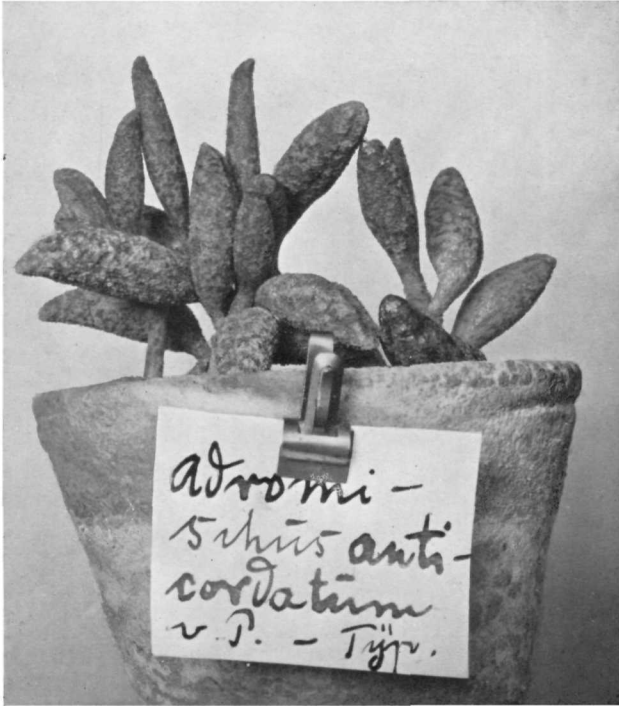 adromi-
schüs anti-
cordatüm
v P. - Typ.